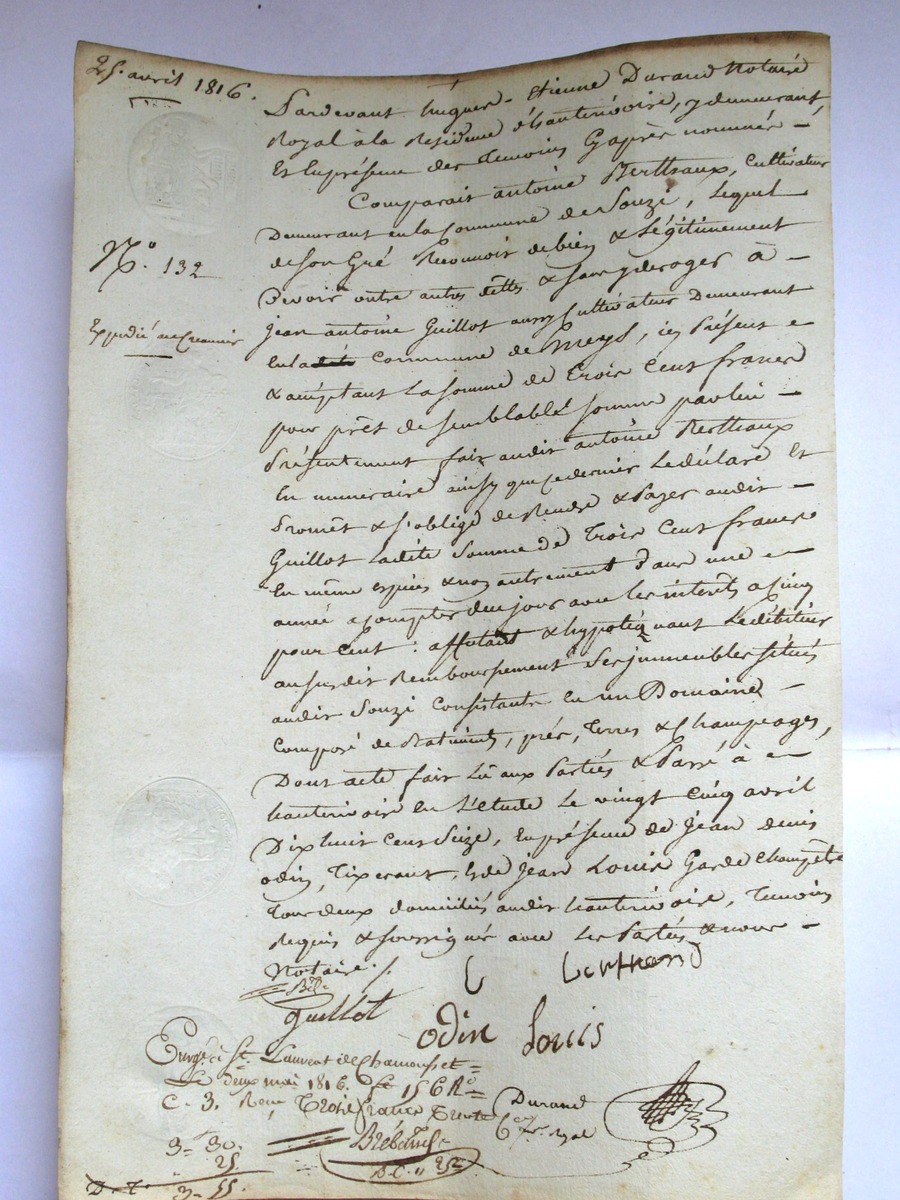 25. avril 1816.
Pardevant hugues-Etienne Durand Notaire
Royal à la Résidence d'hauterivoire, y demeurant
Et En présence des Temoins Cy après nommés —
Comparait antoine Berthaux, Cultivateur
Demeurant en la Commune de Souzi, lequel
de son Gré Reconnoit debien & Légitimement
N.o 132
Devoir outre autres dettes & sans y deroger à —
Expédié au Creancier
Jean antoine Guillot aussy Cultivateur Demeurant
En la Commune de Meys, icy Présent
& acceptant La somme de Trois Cent francs
pour prêt de semblable somme par lui —
Présentement fait audit antoine Berthaux
En numeraire ainsy que ce dernier Le déclare Et
Promêt & s'oblige de Rendre & Payer audit —
Guillot Ladite Somme de Trois Cent francs
En même espèces & non autrement Dans une
année a compter de ce jour avec les interets a Cinq
pour Cent : affectant & hypotéquant Le débiteur
au susdit Remboursement Ses immeubles situés
audit Souzi Consistants En un Domaine —
Composé de Batiments, prés, Terres & Champéages,
Dont acte fait Lû aux Parties & Passé à
hauterivoire En L'étude Le vingt Cinq avril
Dix huit Cent Seize, En présence de Jean denis
odin, Tixerant, & de Jean Louis Garde Champêtre
Tous deux domiciliés audit hauterivoire, Temoins
Requis & soussignés avec Les Parties & nous —
Notaire./.
Guillot
odin Louis
Enregé à St. Laurent de Chamousset
Le deux mai 1816. fo 156 Ro
C. 3. Reçu Trois francs Trente
Durand
Not.re Royal
3 = 30.
25.
3 = 55.